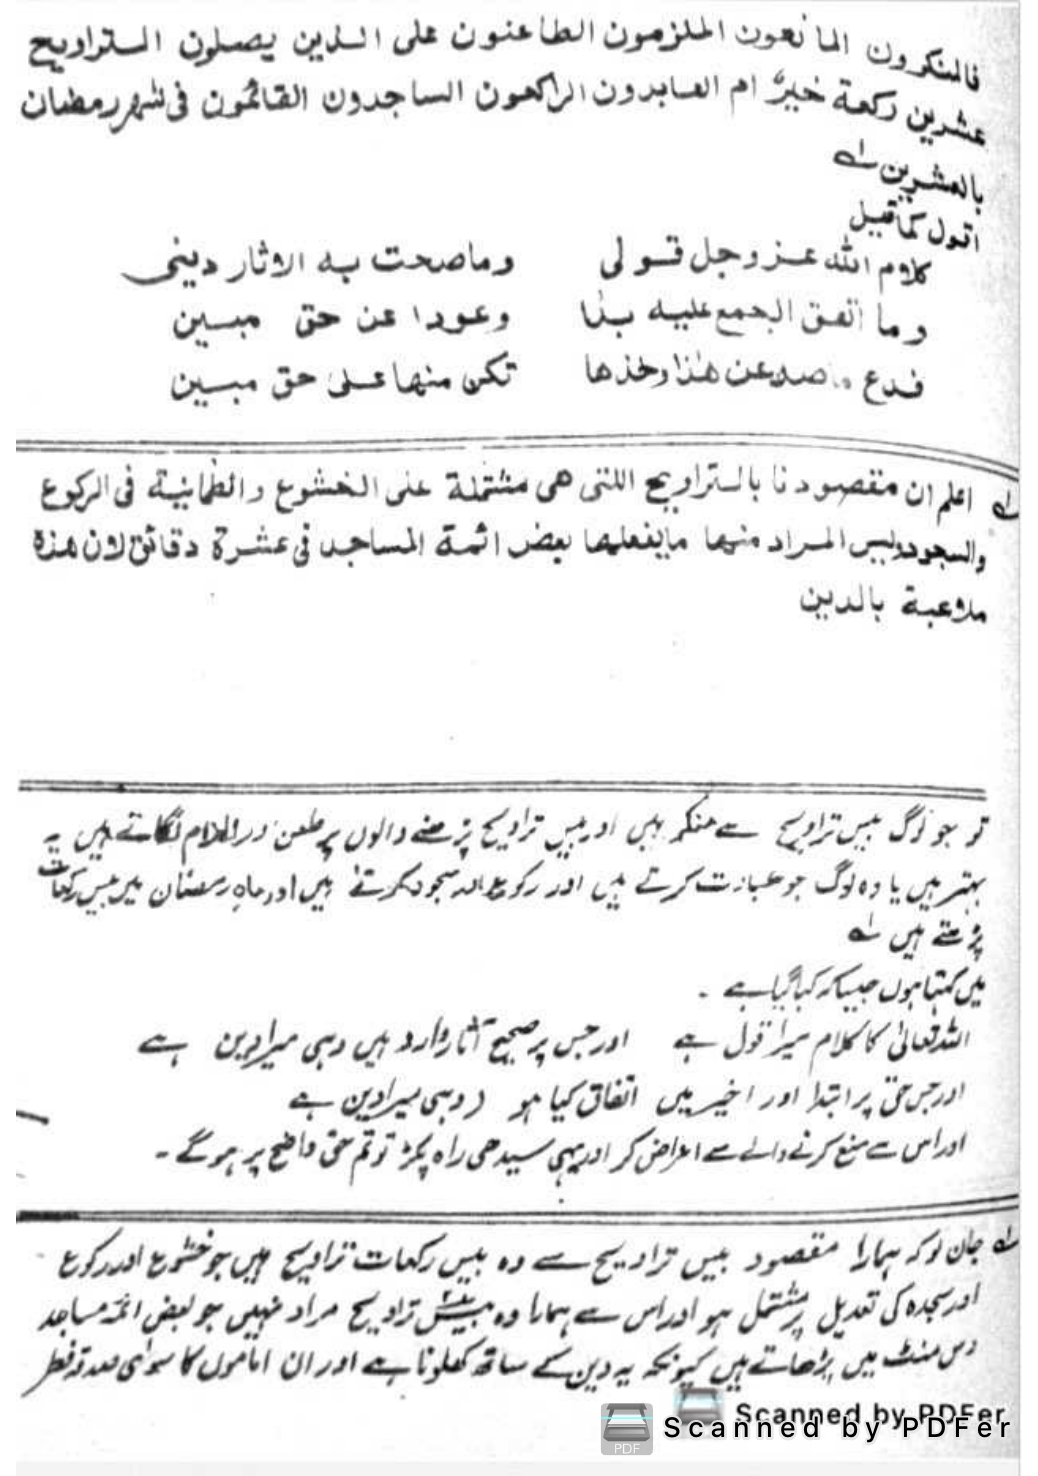 فالمنكرون المانعون الملزمون الطاعنون على الذين يصلون التراويح
عشرين ركعة خيرٌ ام العابدون الراكعون الساجدون القائمون فى شهر رمضان
بالعشرين لے
اقول كما قيل
كلام الله عز وجل قولى وماصحت به الاثار دينى
وما اتفق الجمع عليه بدا وعودا عن حق مبين
فدع ماصد عن هذا وخذها تكن منها على حق مبين
لے اعلم ان مقصودنا بالتراويح اللتى هى مشتملة على الخشوع والطمانية فى الركوع
والسجود وليس المراد منها مايفعلها بعض ائمة المساجد فى عشرة دقائق لان هذه
ملاعبة بالدين
تو جو لوگ بیس تراویح سے منکر ہیں اور بیس تراویح پڑھنے والوں پر طعن اور الزام لگاتے ہیں یہ
بہتر ہیں یا وہ لوگ جو عبادت کرتے ہیں اور رکوع اور سجود کرتے ہیں اور ماہِ رمضان میں بیس رکعات
پڑھتے ہیں لے
میں کہتا ہوں جیسا کہ کہا گیا ہے ۔
اللہ تعالیٰ کا کلام میرا قول ہے اور جس پر صحیح آثار وارد ہیں وہی میرا دین ہے
اور جس حق پر ابتدا اور اخیر میں اتفاق کیا ہو (وہی میرا دین ہے
اور اس سے منع کرنے والے سے اعراض کر اور یہی سیدھی راہ پکڑ تو تم حق واضح پر ہوگے ۔
لے جان لو کہ ہمارا مقصود بیس تراویح سے وہ بیس رکعات تراویح ہیں جو خشوع اور رکوع
اور سجدہ کی تعدیل پر مشتمل ہو اور اس سے ہمارا وہ بیس تراویح مراد نہیں جو بعض ائمہ مساجد
دس منٹ میں پڑھاتے ہیں کیونکہ یہ دین کے ساتھ کھلونا ہے اور ان اماموں کا سوائی صدقہ فطر
Scanned by PDFer
Scanned by PDFer
PDF